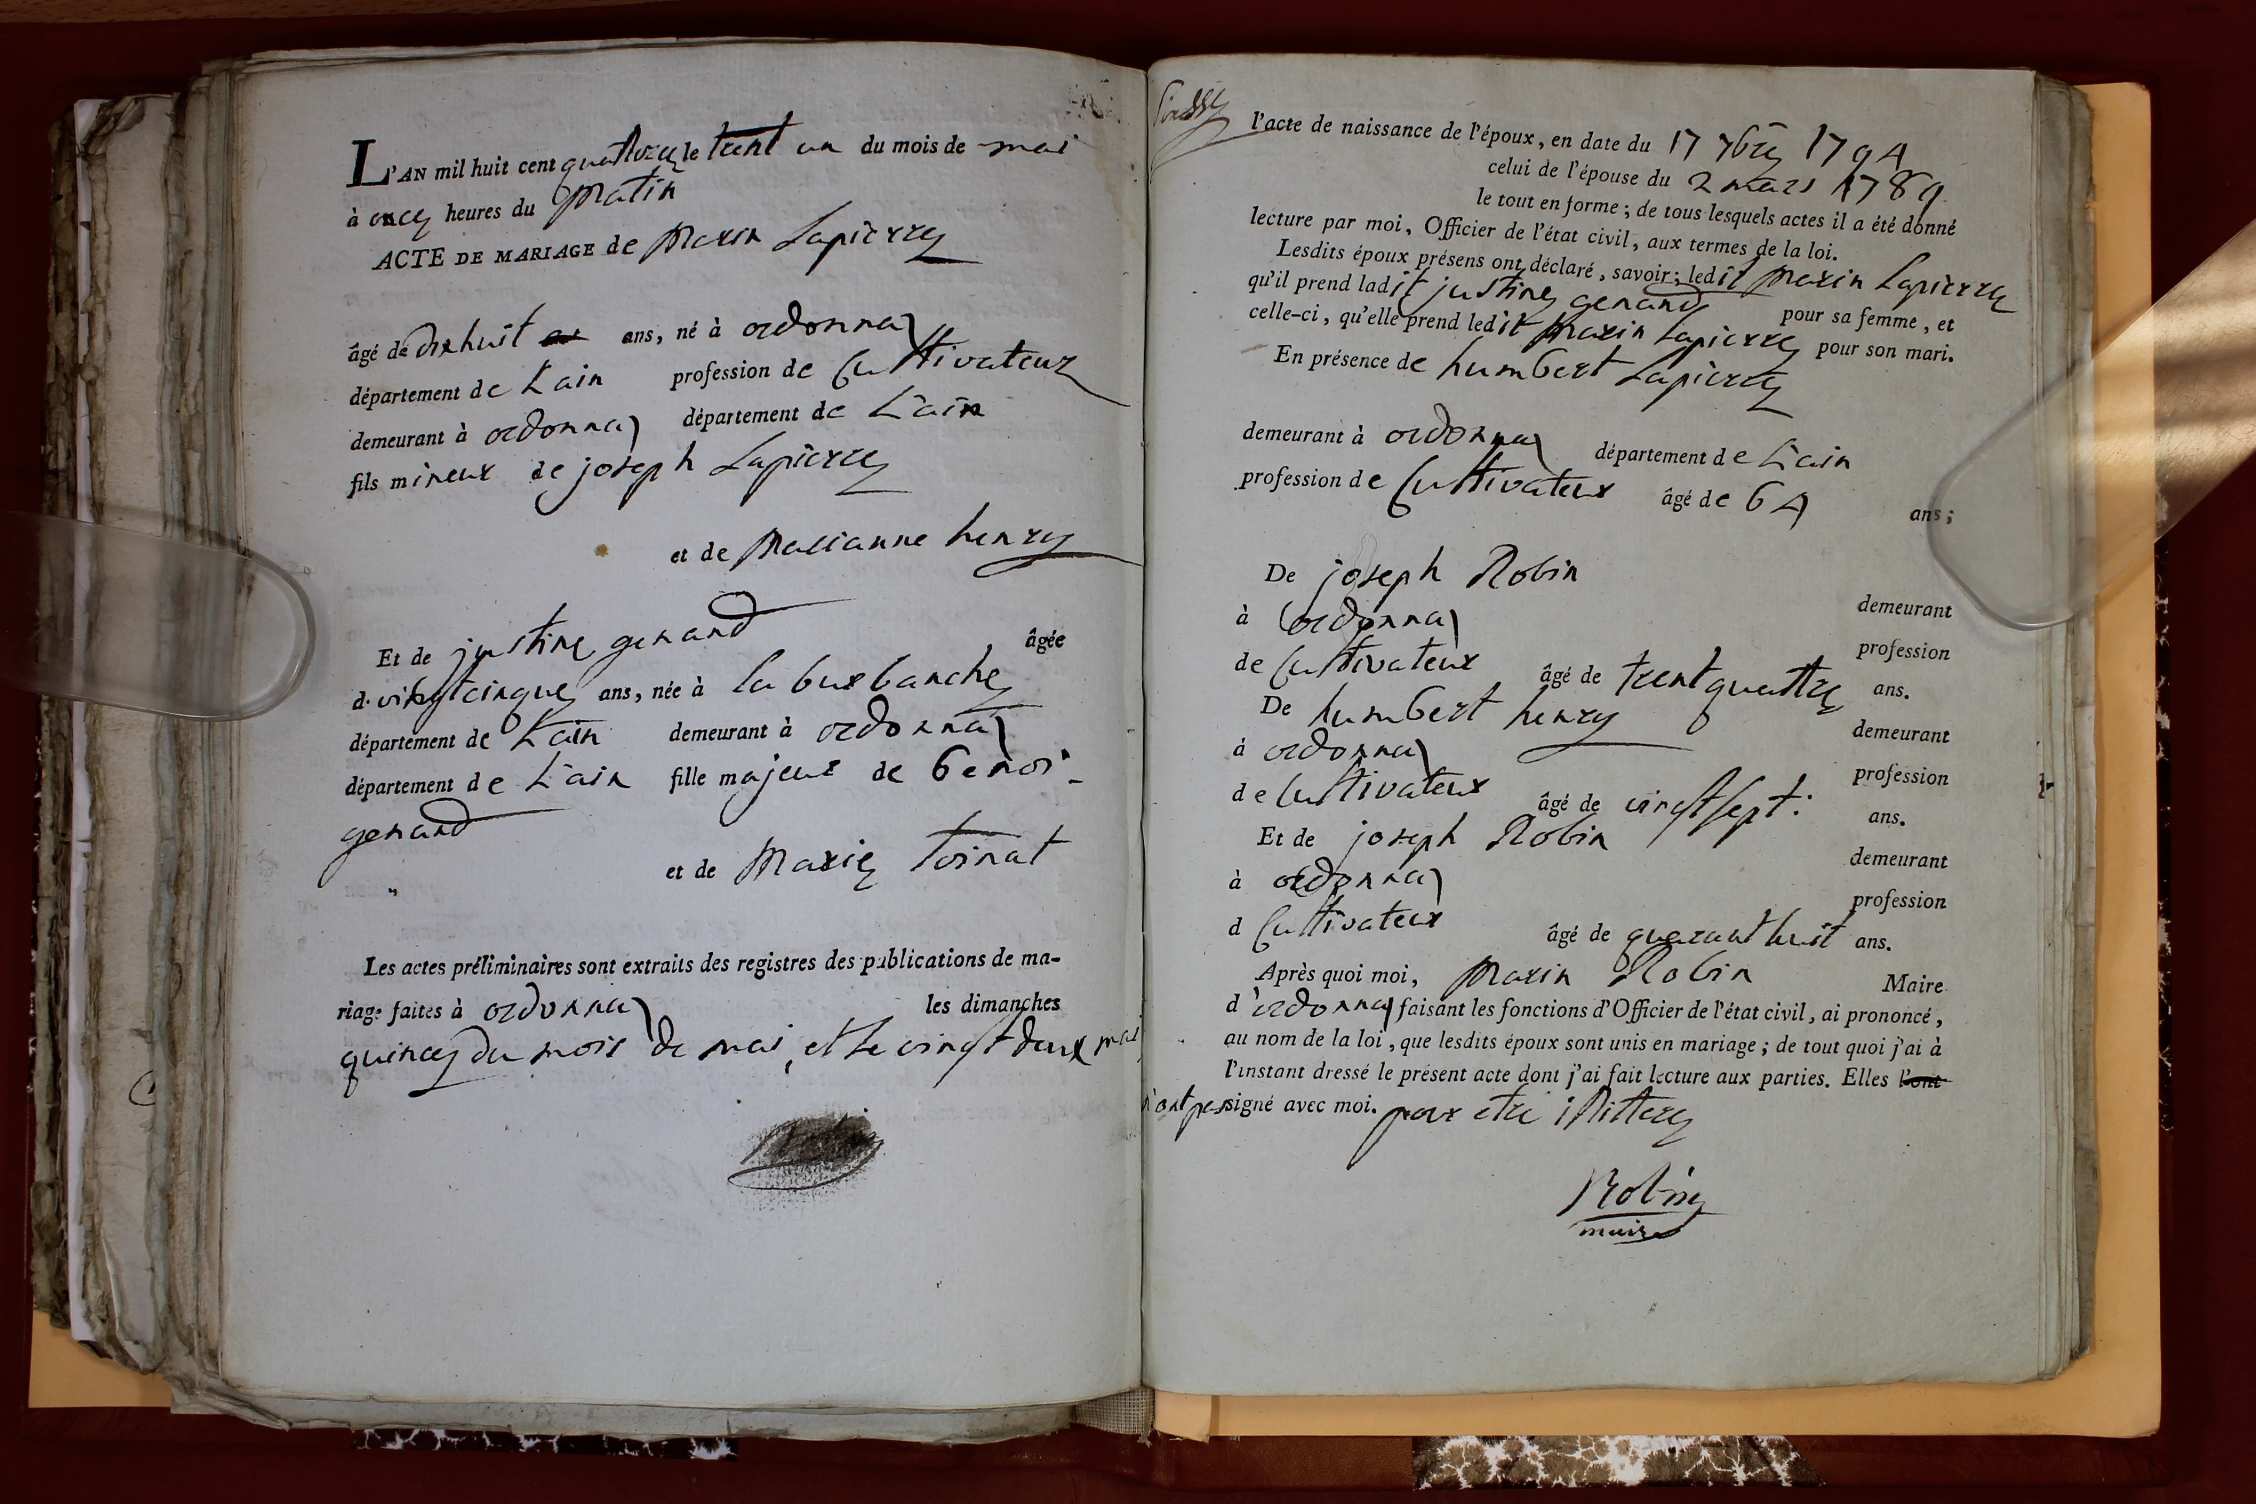 L'AN mil huit cent quattorze le trent un du mois de mai
à once heures du matin
ACTE DE MARIAGE de marin Lapierre
âgé de dix huit ans, né à ordonnas
département de L'ain profession de Culttivateur
demeurant à ordonnas département de L'ain
fils mineur de joseph Lapierre
et de marianne henry
Et de justine genand âgée
d. vingt cinque ans, née à la burbanche
département de L'ain demeurant à ordonnas
département de L'ain fille majeur de benoi-
genand
et de marie toinat
Les actes préliminaires sont extraits des registres des publications de ma-
riage faites à ordonnas les dimanches
quince du mois de mai, et le vingt deux mai
l'acte de naissance de l'époux, en date du 17 7bre 1794
celui de l'épouse du 2 mars 1789
le tout en forme ; de tous lesquels actes il a été donné
lecture par moi, Officier de l'état civil, aux termes de la loi.
Lesdits époux présens ont déclaré, savoir ; ledit marin Lapierre
qu'il prend ladit justine genand pour sa femme, et
celle-ci, qu'elle prend ledit marin Lapierre pour son mari.
En présence de humbert Lapierre
demeurant à ordonnas département de L'ain
profession de Culttivateur âgé de 64 ans ;
De joseph Robin demeurant
à ordonnas profession
de Culttivateur âgé de trent quattre ans.
De humbert henry demeurant
à ordonnas profession
de Culttivateur âgé de vingt sept. ans.
Et de joseph Robin demeurant
à ordonnas profession
d Culttivateur âgé de quarant huit ans.
Après quoi moi, marin Robin Maire
d'ordonnas faisant les fonctions d'Officier de l'état civil, ai prononcé,
au nom de la loi, que lesdits époux sont unis en mariage ; de tout quoi j'ai à
l'instant dressé le présent acte dont j'ai fait lecture aux parties. Elles l'ont
n'ont pas signé avec moi. pour etre illittere
Robin
maire